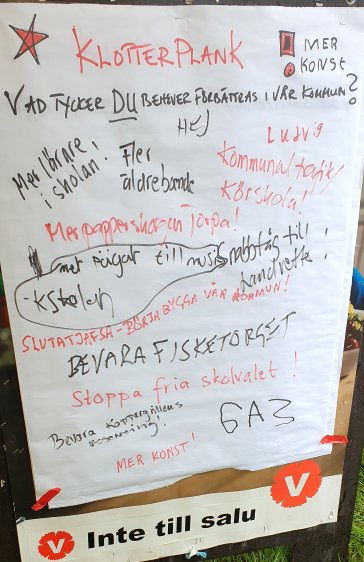 KLOTTERPLANK
! MER
KONST
VAD TYCKER DU BEHÖVER FÖRBÄTTRAS I VÅR KOMMUN?
HEJ
Ludvig
Mer lärare
i skolan!
Fler
äldreboende
Kommunal trafik/
Körskola!
Mer pappershorgen Torpa!
mer färgat till musik
skolan
snabbtåg till
Landvetter!
SLUTA TJAFSA - BÖRJA BYGGA VÅR KOMMUN!
BEVARA FISKETORGET
Stoppa fria skolvalet!
Bevara Koppargållens
GAZ
MER KONST!
V Inte till salu V